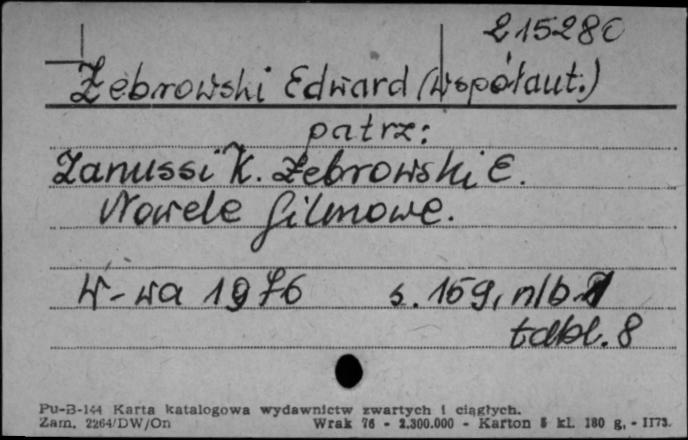 215280
Żebrowski Edward (współaut.)
patrz:
Zanussi K. Żebrowski E.
Nowele filmowe.
W-wa 1976 s. 169, nlb
tabl. 8
Pu-B-144 Karta katalogowa wydawnictw zwartych i ciągłych.
Zam. 2264/DW/On Wrak 76 - 2.300.000 - Karton 5 kl. 180 g, - II73.